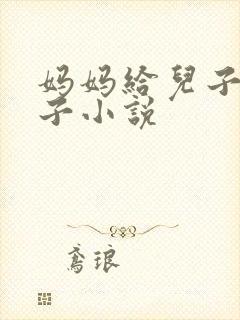 妈妈给兒子
子小説
鸢琅